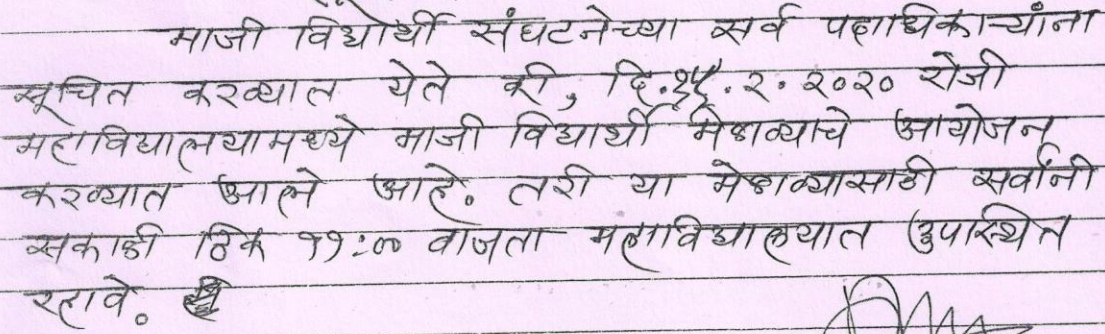 माजी विद्यार्थी संघटनेच्या सर्व पदाधिकाऱ्यांना
सूचित करण्यात येते की, दि. २. २०२० रोजी
महाविद्यालयामध्ये माजी विद्यार्थी मेळाव्याचे आयोजन
करण्यात आले आहे. तरी या मेळाव्यासाठी सर्वांनी
सकाळी ठिक ११:०० वाजता महाविद्यालयात उपस्थित
रहावे.